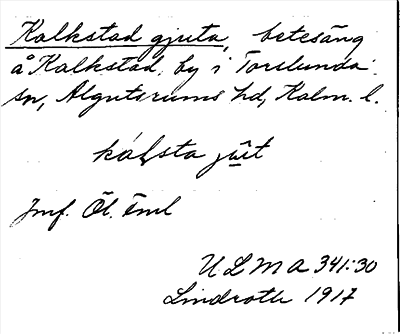 Kalkstad gjuta, betesäng
å Kalkstad, by i Torslunda
sn, Algutsrums hd, Kalm. l.
kálsta jut
Jmf. Öl.
ULMA 341:30
Lindroth 1917